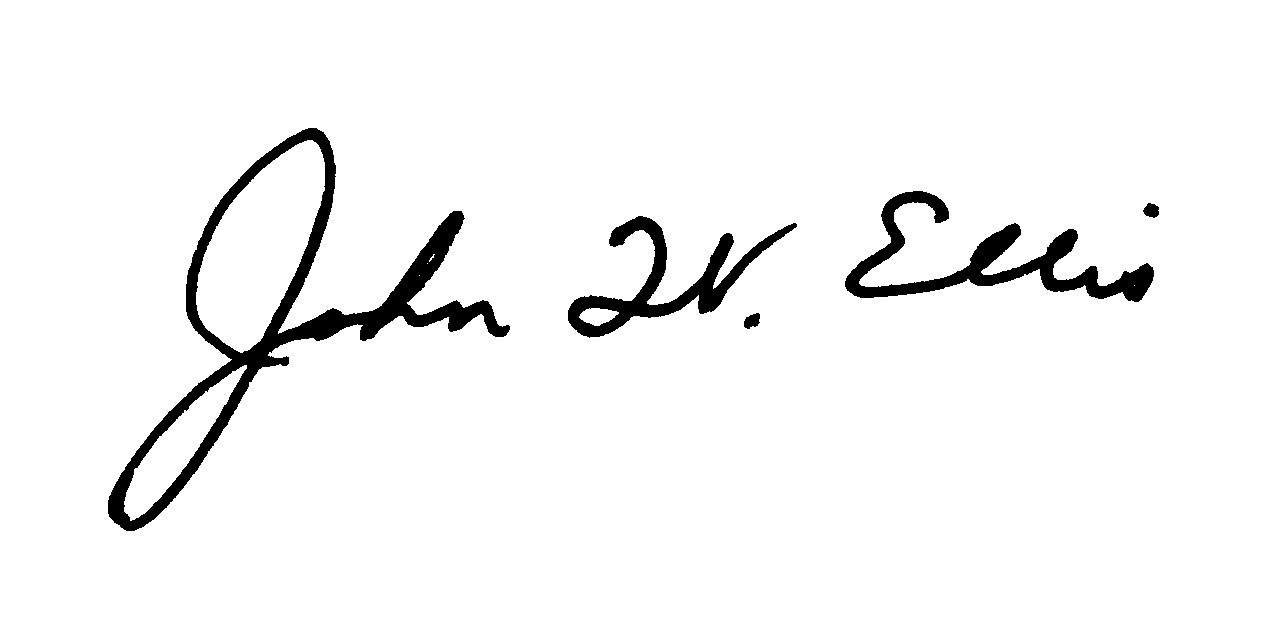 John W. Ellis